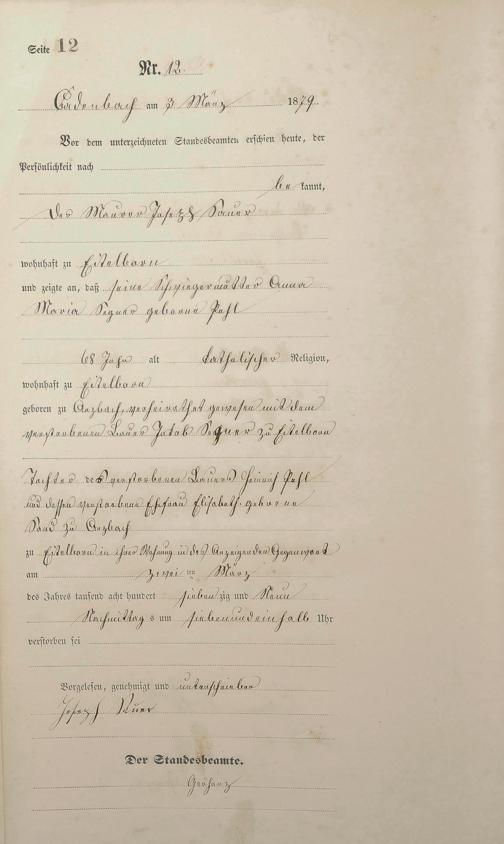 Seite 12
Nr. 12.
Cadenbach am 3 März 1879.
Vor dem unterzeichneten Standesbeamten erschien heute, der
Persönlichkeit nach
be kannt,
Der Maurer Joseph Sauer
wohnhaft zu Eitelborn
und zeigte an, daß seine Schwiegermutter Anna
Maria Segner geborne Pehl
68 Jahr alt katholischer Religion,
wohnhaft zu Eitelborn
geboren zu Arzbach, verheirathet gewesen mit dem
verstorbenen Bauer Jakob Segner zu Eitelborn
Tochter des verstorbenen Bauers Heinrich Pehl
und dessen verstorbene Ehefrau Elisabeth geborne
Sand zu Arzbach
zu Eitelborn in ihrer Wohnung in des Anzeigenden Gegenwart
am zwei ten März
des Jahres tausend acht hundert sieben zig und Neun
Nachmittag s um siebenundeinhalb Uhr
verstorben sei
Vorgelesen, genehmigt und unterschrieben
Joseph Sauer
Der Standesbeamte.